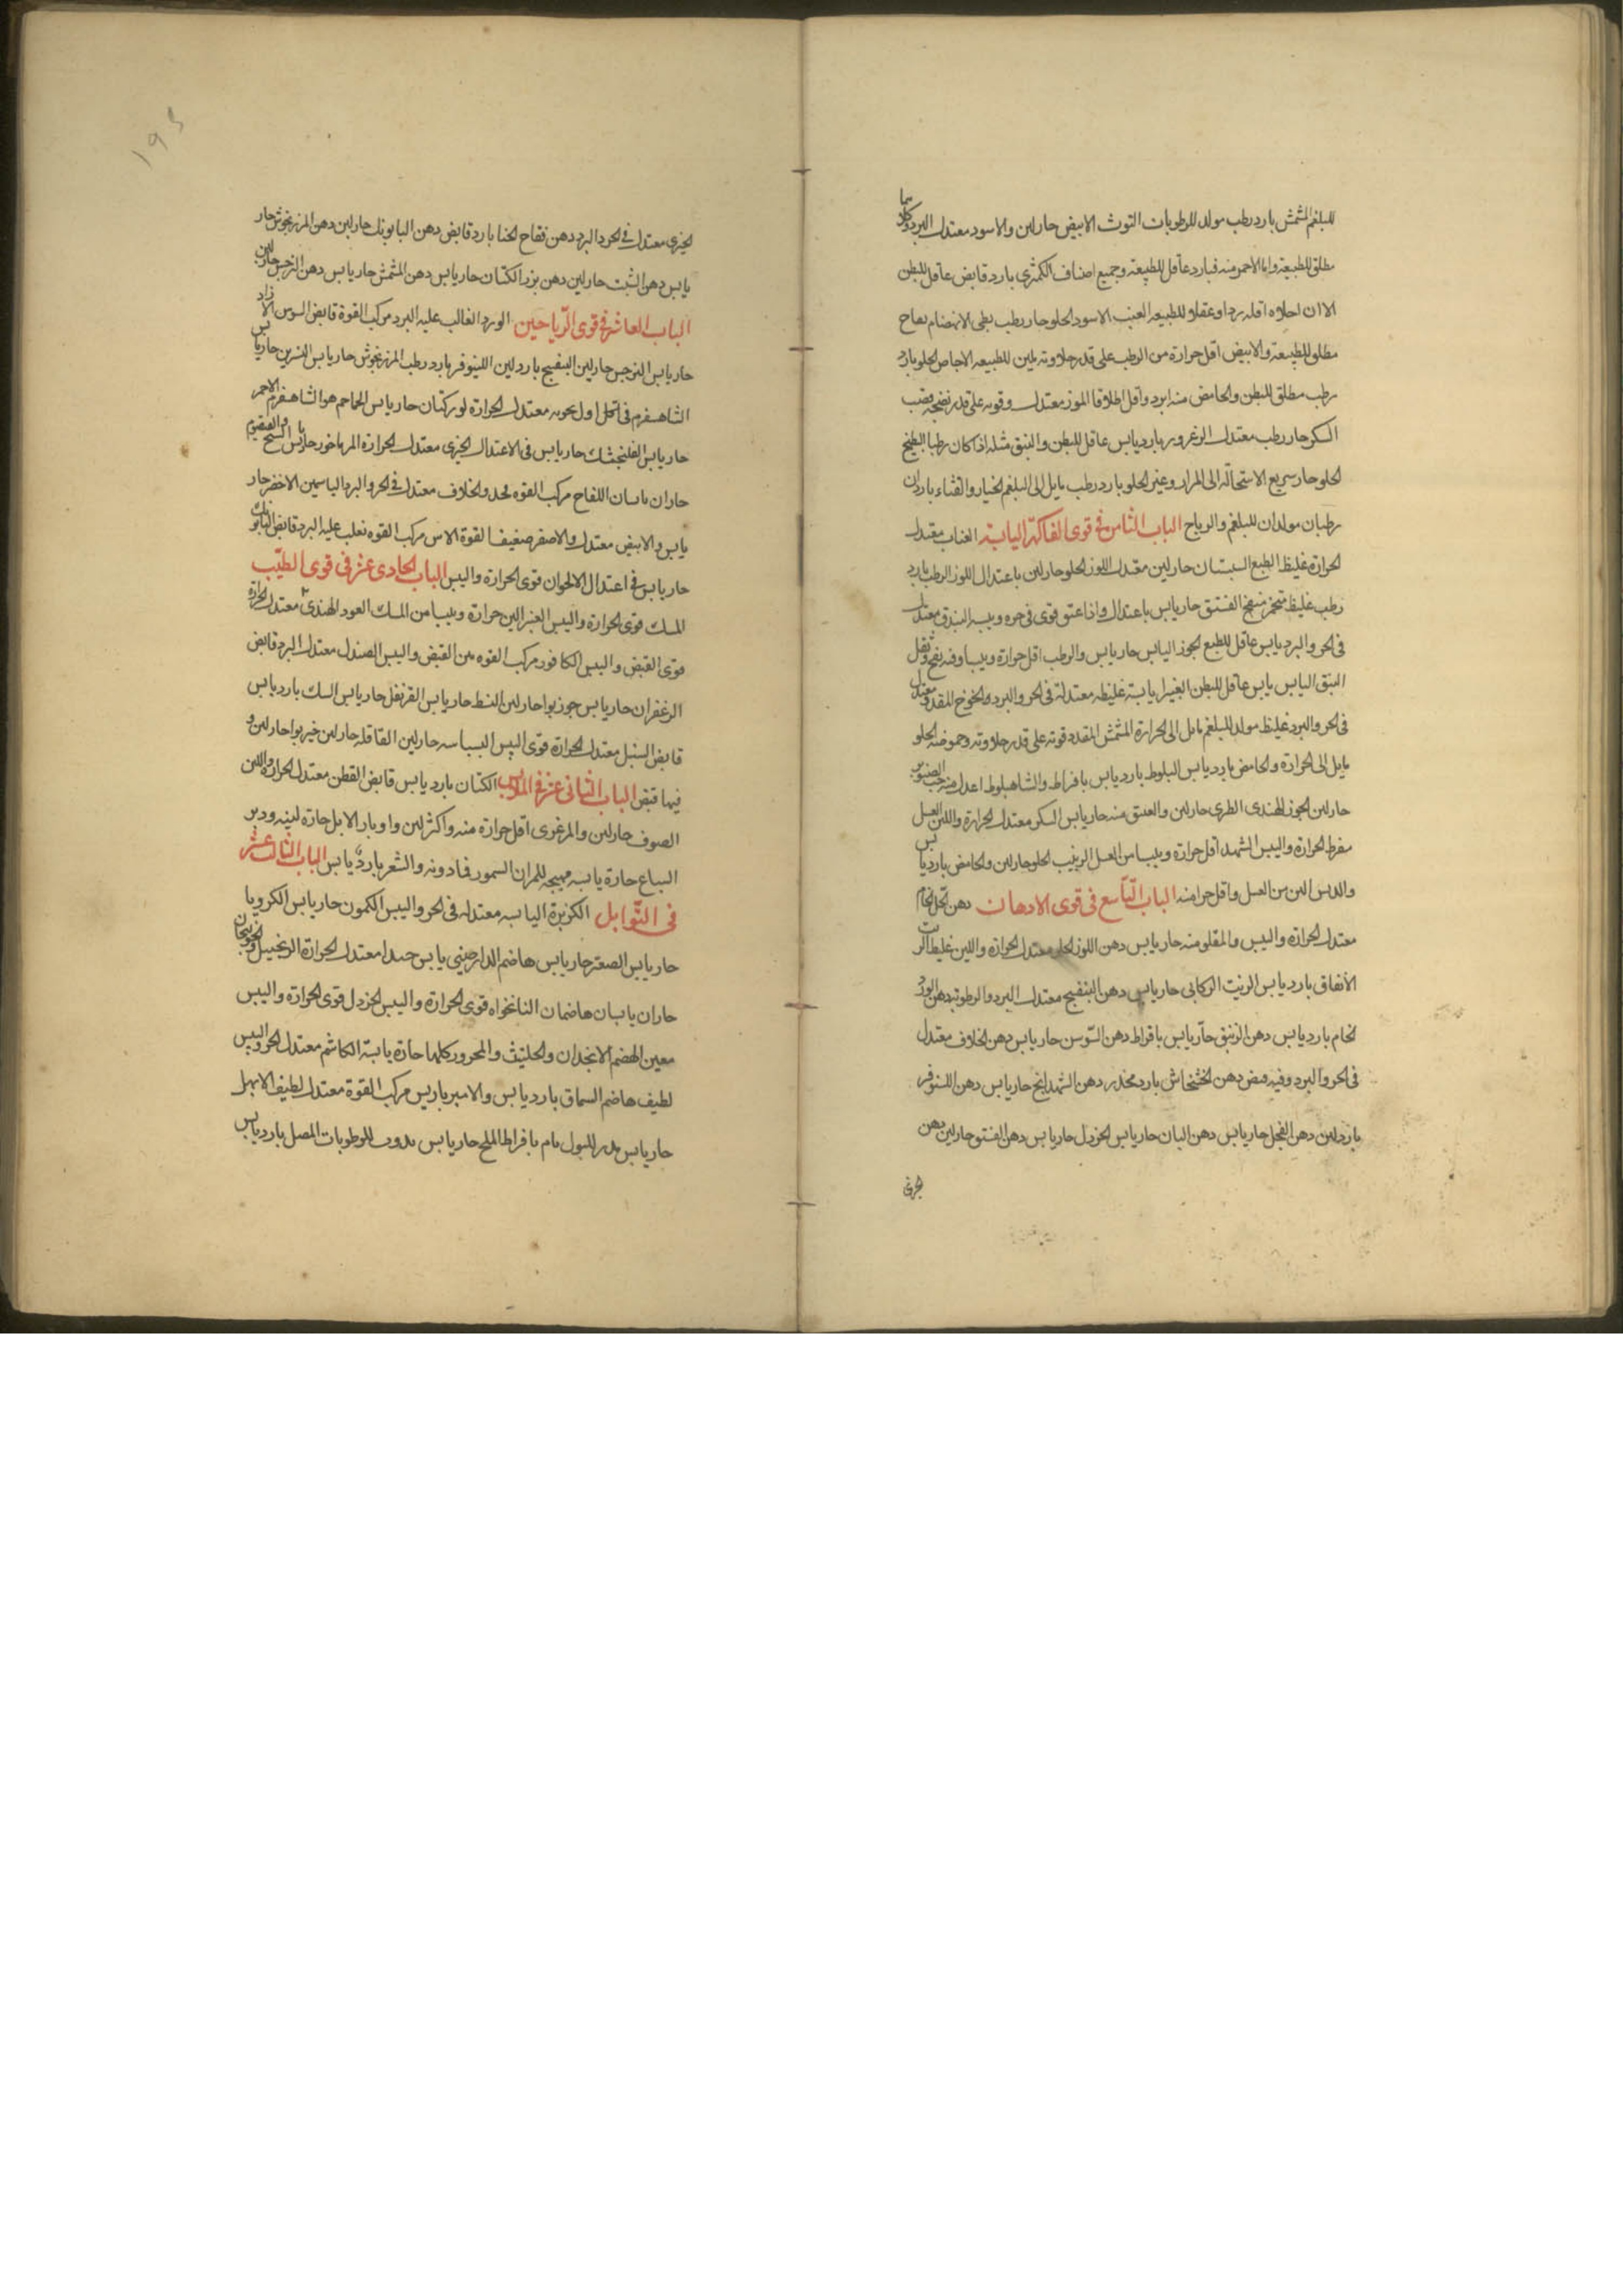 للبلغم المشمش بارد رطب مولد للرطوبات التوث الابيض حار لين والاسود معتدل البرد وكلاهما
مطلق للطبيعة واما الاحمر منه فبارد عاقل للطبيعة وجميع اصناف الكمثرى بارد قابض عاقل للبطن
الا ان احلاه اقله بردا وعقلا للطبيعه العنب الاسود الحلو حار رطب بطى الانهضام نفاخ
مطلق للطبيعة والابيض اقل حرارة من الرطب على قدر حلاوته ملين للطبيعه الاجاص الحلو بارد
رطب مطلق للبطن والحامض منه ابرد واقل اطلاقا الموز معتدل وقوته على قدر نضجه قصب
السكر حار رطب معتدل الزعرور بارد يابس عاقل للبطن والنبق مثله اذا كان رطبا البطيخ
الحلو حار سريع الاستحالة الى المرار وغير الحلو بارد رطب مايل الى البلغم الخيار والقثاء باردان
رطبان مولدان للبلغم والرياح الباب الثامن فى قوى الفاكهة اليابسة العناب معتدل
الحرارة غليظ الطبع السبستان حار لين معتدل اللوز الحلو حار لين باعتدال اللوز الرطب بارد
رطب غليظ الفستق حار يابس باعتدال واذا عتق قوى فى حره ويبسه البندق معتدل
فى الحر والبرد يابس عاقل للطبع الجوز اليابس حار يابس والرطب اقل حرارة ويبسا وفيه نفخ وثقل
النبق اليابس يابس عاقل للبطن الغبيرا يابسة غليظه معتدلة فى الحر والبرد والخوخ المقدد معتدل
فى الحر والبرد غليظ مولد للبلغم مايل الى الحرارة المشمش المقدد قوته على قدر حلاوته وحموضته الحلو
مايل الى الحرارة والحامض بارد يابس البلوط بارد يابس بافراط والشاهبلوط اعدل منه حب الصنوبر
حار لين الجوز الهندى الطرى حار لين والعتيق منه حار يابس السكر معتدل الحرارة واللين العسل
مفرط الحرارة واليبس الشهد اقل حرارة ويبسا من العسل الزبيب الحلو حار لين والحامض بارد يابس
والدبس الين من العسل واقل حرا منه الباب التاسع فى قوى الادهان دهن الخل الخام
معتدل الحرارة واليبس والمقلو منه حار يابس دهن اللوز الحلو معتدل الحرارة واللين غليظ الزيت
الانفاق بارد يابس الزيت الركابى حار يابس دهن البنفسج معتدل البرد والرطوبة دهن الورد
الخام بارد يابس دهن الزنبق حار يابس بافراط دهن السوسن حار يابس دهن الخلاف معتدل
فى الحر والبرد وفيه قبض دهن الخشخاش بارد مخدر دهن الشهدانج حار يابس دهن اللينوفر
بارد لين دهن الفجل حار يابس دهن البان حار يابس الخردل حار يابس دهن الفستق حار لين دهن
الخيرى
الخيرى معتدل فى الحر والبرد دهن فقاح الحنا بارد قابض دهن البابونك حار لين دهن المرزنجوش حار
يابس دهن الشبت حار لين دهن بزر الكتان حار يابس دهن المشمش حار يابس دهن النرجس حار لين
الباب العاشر فى قوى الرياحين الورد الغالب عليه البرد مركب القوة قابض السوسن الازاد
حار يابس النرجس حار لين البنفسج بارد لين اللينوفر بارد رطب المرزنجوش حار يابس النسرين حار يابس
الشاهسفرم فى معتدل الحرارة حار يابس الحماحم هو الشاهسفرم الاحمر
حار يابس الفلنجمشك حار يابس فى الاعتدال الخيرى معتدل الحرارة المرماخور حار يابس الشيح والقيصوم
حاران يابسان اللفاح مركب القوة مخدر والخلاف معتدل فى الحر والبرد الياسمين الاخضر حار
يابس والابيض معتدل والاصفر ضعيف القوة الاس مركب القوه يغلب عليه البرد قابض البابونك
حار يابس فى اعتدال الاقحوان قوى الحرارة واليبس الباب الحادى عشر فى قوى الطيب
المسك قوى الحرارة واليبس العنبر الين حرارة ويبسا من المسك العود الهندى معتدل الحرارة
قوى القبض واليبس الكافور مركب القوه من القبض واليبس الصندل معتدل البرد قابض
الزعفران حار يابس جوزبوا حار لين القسط حار يابس القرنفل حار يابس السك بارد يابس
قابض السنبل معتدل الحرارة قوى اليبس البسباسه حار لين القاقله حار لين خيربوا حار لين و
فيها قبض الباب الثانى عشر فى الملابس الكتان بارد يابس قابض القطن معتدل الحرارة واللين
الصوف حار لين والمرعزى اقل حرارة منه واكثر لين واوبار الابل حارة لينه ووبر
السباع حارة يابسه مهيجه للمرار السمور فما دونه والشعر بارد يابس الباب الثالث عشر
فى التوابل الكزبرة اليابسه معتدله فى الحر واليبس الكمون حار يابس الكرويا
حار يابس الصعتر حار يابس هاضم الدارصينى يابس جدا معتدل الحرارة الزنجبيل والخولنجان
حاران يابسان هاضمان النانخواه قوى الحرارة واليبس الخردل قوى الحرارة واليبس
معين الهضم الانجدان والحلتيث والمحروث كلها حارة يابسة الكاشم معتدل الحر واليبس
لطيف هاضم السماق بارد يابس والامبرباريس مركب القوة معتدل لطيف الابهل
حار يابس مدر للبول بافراط الملح حار يابس للرطوبات المصل بارد يابس